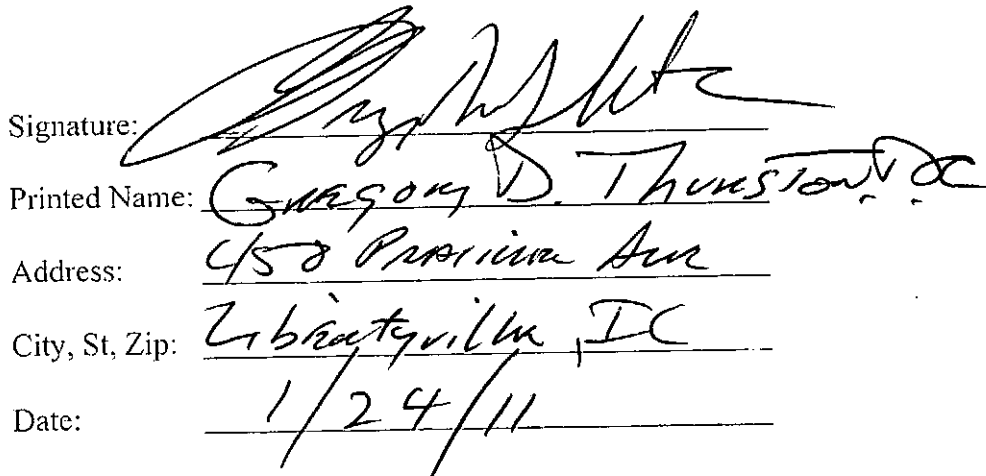 Signature:
Printed Name: Gregory D. Thurston D.C.
Address: 450 Prairie Ave
City, St, Zip: Libertyville, IL
Date: 1/24/11